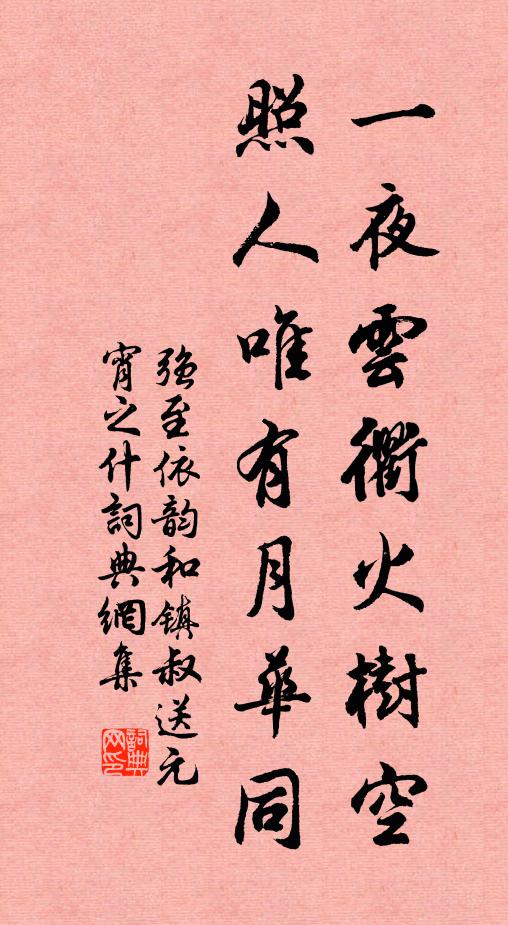 一夜雲衢火樹空
照人唯有月華同
強至依韵和鎮叔送元
宵之什詞典網集
詞典网印